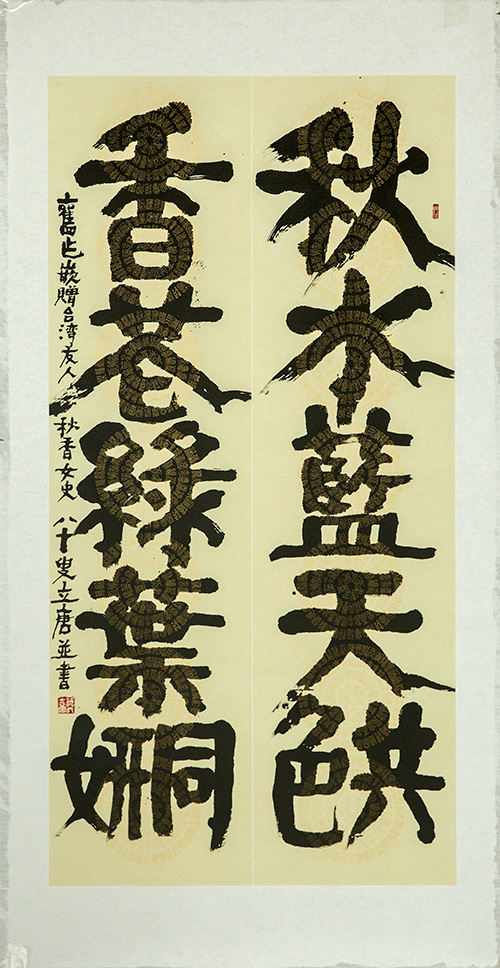 秋水藍天共色
香花綠葉同妍
舊作嵌贈台湾友人秋香女史 八十叟立唐並書